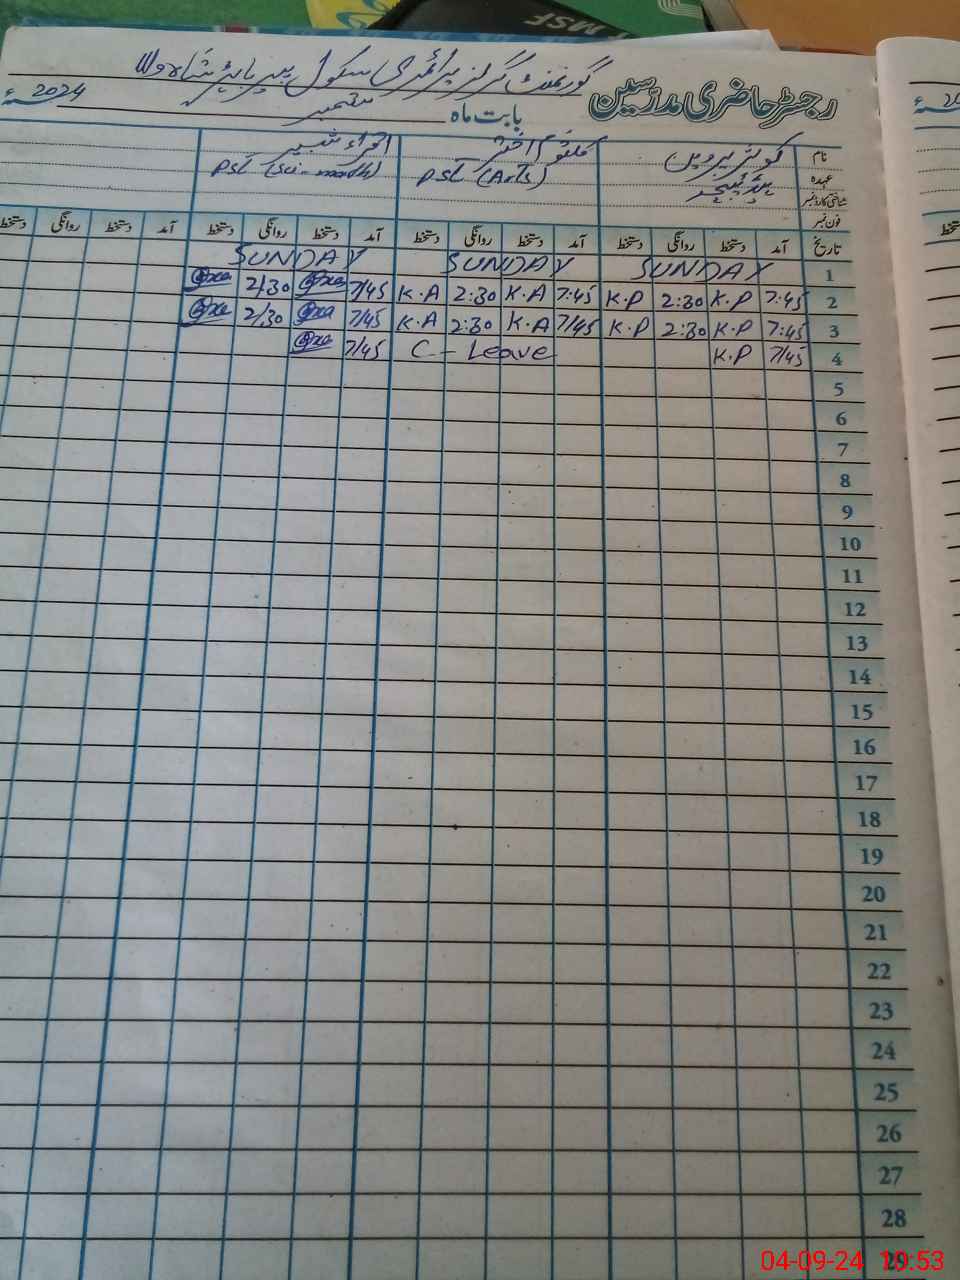 MSF
گورنمنٹ گرلز پرائمری سکول
رجسٹر حاضری مدرسین
بابت ماہ ستمبر
2024ء
نام کوثر پروین کلثوم اختر اقراء شبیر
عہدہ ہیڈ ٹیچر PST (Arts) PST (Sci-math)
شناختی کارڈ نمبر
فون نمبر
تاریخ آمد دستخط روانگی دستخط آمد دستخط روانگی دستخط آمد دستخط روانگی دستخط آمد دستخط روانگی دستخط
1 SUNDAY SUNDAY SUNDAY
2 7:45 K.P 2:30 K.P 7:45 K.A 2:30 K.A 7/45 2/30
3 7:45 K.P 2:30 K.P 7/45 K.A 2:30 K.A 7/45 2/30
4 7/45 K.P C-Leave 7/45
5
6
7
8
9
10
11
12
13
14
15
16
17
18
19
20
21
22
23
24
25
26
27
28
29
04-09-24 10:53